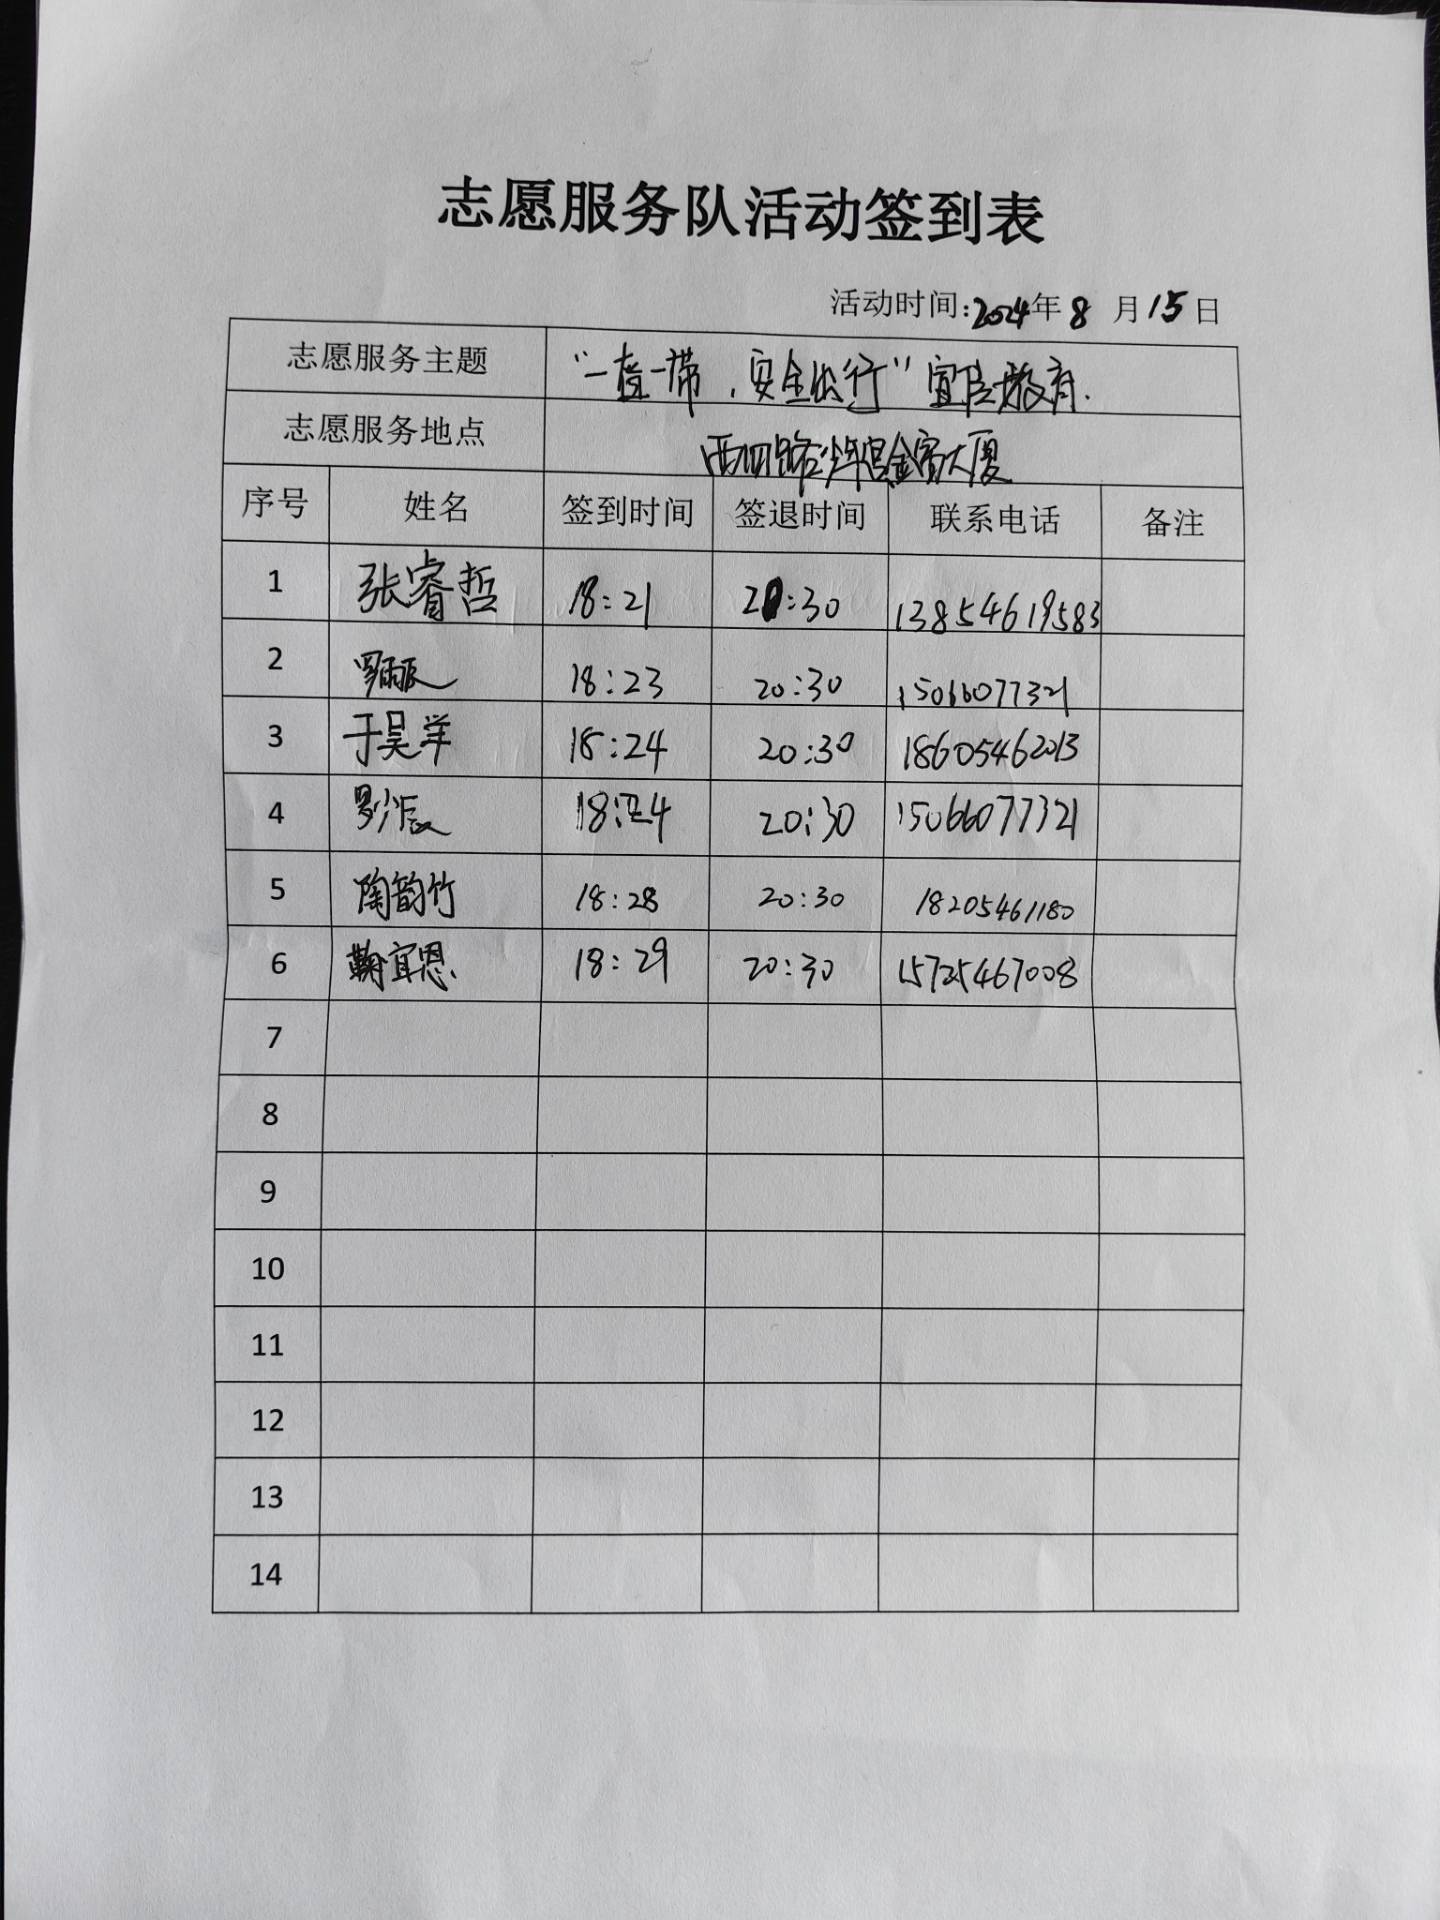 志愿服务队活动签到表
活动时间:2024年8月15日
志愿服务主题 "一盔一带,安全出行"宣传教育.
志愿服务地点 西四路 金 大厦
序号 姓名 签到时间 签退时间 联系电话 备注
1 张睿哲 18:21 20:30 13854619583
2 罗 18:23 20:30 15066077321
3 于昊洋 18:24 20:30 18605462013
4 罗 辰 18:24 20:30 15066077321
5 陶韵竹 18:28 20:30 18205461180
6 鞠宜恩 18:29 20:30 15725467008
7
8
9
10
11
12
13
14